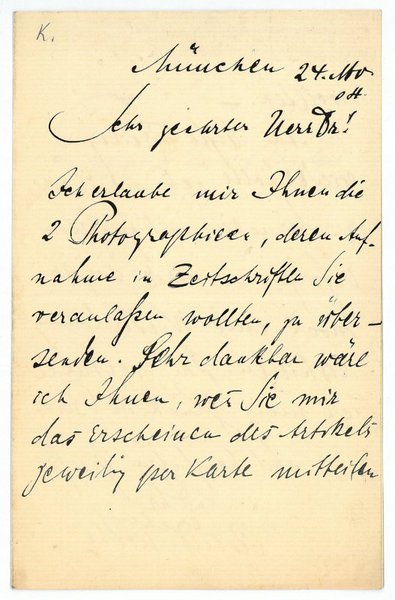 K.
München 24. Nov
04.
Sehr geehrter Herr Dr!
Ich erlaube mir Ihnen die
2 Photographieen, deren Auf-
nahme in Zeitschriften Sie
veranlaßen wollten, zu über-
senden. Sehr dankbar wäre
ich Ihnen, wen Sie mir
das Erscheinen des Artikels
jeweilig per Karte mitteilen